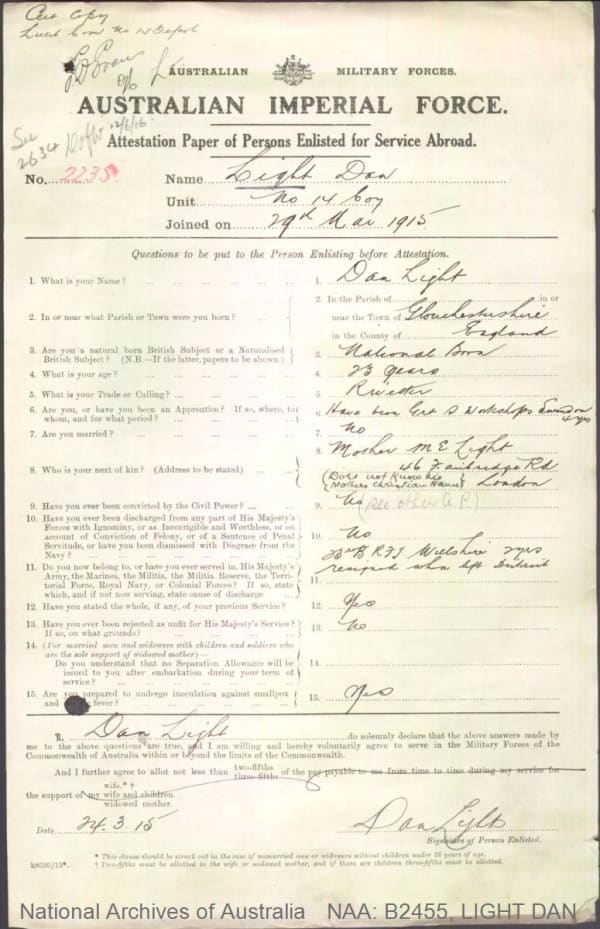 Copy
AUSTRALIAN MILITARY FORCES.
AUSTRALIAN IMPERIAL FORCE.
Attestation Paper of Persons Enlisted for Service Abroad.
See
2634
12/6/16
No. 2235 Name Light Dan
Unit No 14 Coy
Joined on 29th Mar 1915
Questions to be put to the Person Enlisting before Attestation.
1. What is your Name? 1. Dan Light
2. In or near what Parish or Town were you born? 2. In the Parish of in or
near the Town of Glouchestershire
in the County of England
3. Are you a natural born British Subject or a Naturalised
British Subject? (N.B.—If the latter, papers to be shown.) 3. National Born
4. What is your age? 4. 23 years
5. What is your Trade or Calling? 5. Rivetter
6. Are you, or have you been an Apprentice? If so, where, to
whom, and for what period? 6. Have been Grt S Workshops Swindon
4 yrs
7. Are you married? 7. No
8. Who is your next of kin? (Address to be stated) 8. Mother M E Light
46 Rd
(Does not Know his
Mothers Christian Name) London
9. Have you ever been convicted by the Civil Power? 9. No (see other A.P.)
10. Have you ever been discharged from any part of His Majesty's
Forces with Ignominy, or as Incorrigible and Worthless, or on
account of Conviction of Felony, or of a Sentence of Penal
Servitude, or have you been dismissed with Disgrace from the
Navy? 10. No
11. Do you now belong to, or have you ever served in, His Majesty's
Army, the Marines, the Militia, the Militia Reserve, the Terri-
torial Force, Royal Navy, or Colonial Forces? If so, state
which, and if not now serving, state cause of discharge 11. Wiltshire 2 yrs
resigned when left District
12. Have you stated the whole, if any, of your previous Service? 12. Yes
13. Have you ever been rejected as unfit for His Majesty's Service?
If so, on what grounds? 13. No
14. (For married men and widowers with children and soldiers who
are the sole support of widowed mother)—
Do you understand that no Separation Allowance will be
issued to you after embarkation during your term of
service? 14.
15. Are you prepared to undergo inoculation against smallpox
and fever? 15. Yes
I, Dan Light do solemnly declare that the above answers made by
me to the above questions are true, and I am willing and hereby voluntarily agree to serve in the Military Forces of the
Commonwealth of Australia within or beyond the limits of the Commonwealth.
And I further agree to allot not less than two-fifths three-fifths of the pay payable to me from time to time during my service for
wife.*†
the support of my wife and children.
widowed mother.
Date 24.3.15 Dan Light
Signature of Person Enlisted.
* This clause should be struck out in the case of unmarried men or widowers without children under 18 years of age.
† Two-fifths must be allotted to the wife or widowed mother, and if there are children three-fifths must be allotted.
National Archives of Australia NAA: B2455, LIGHT DAN